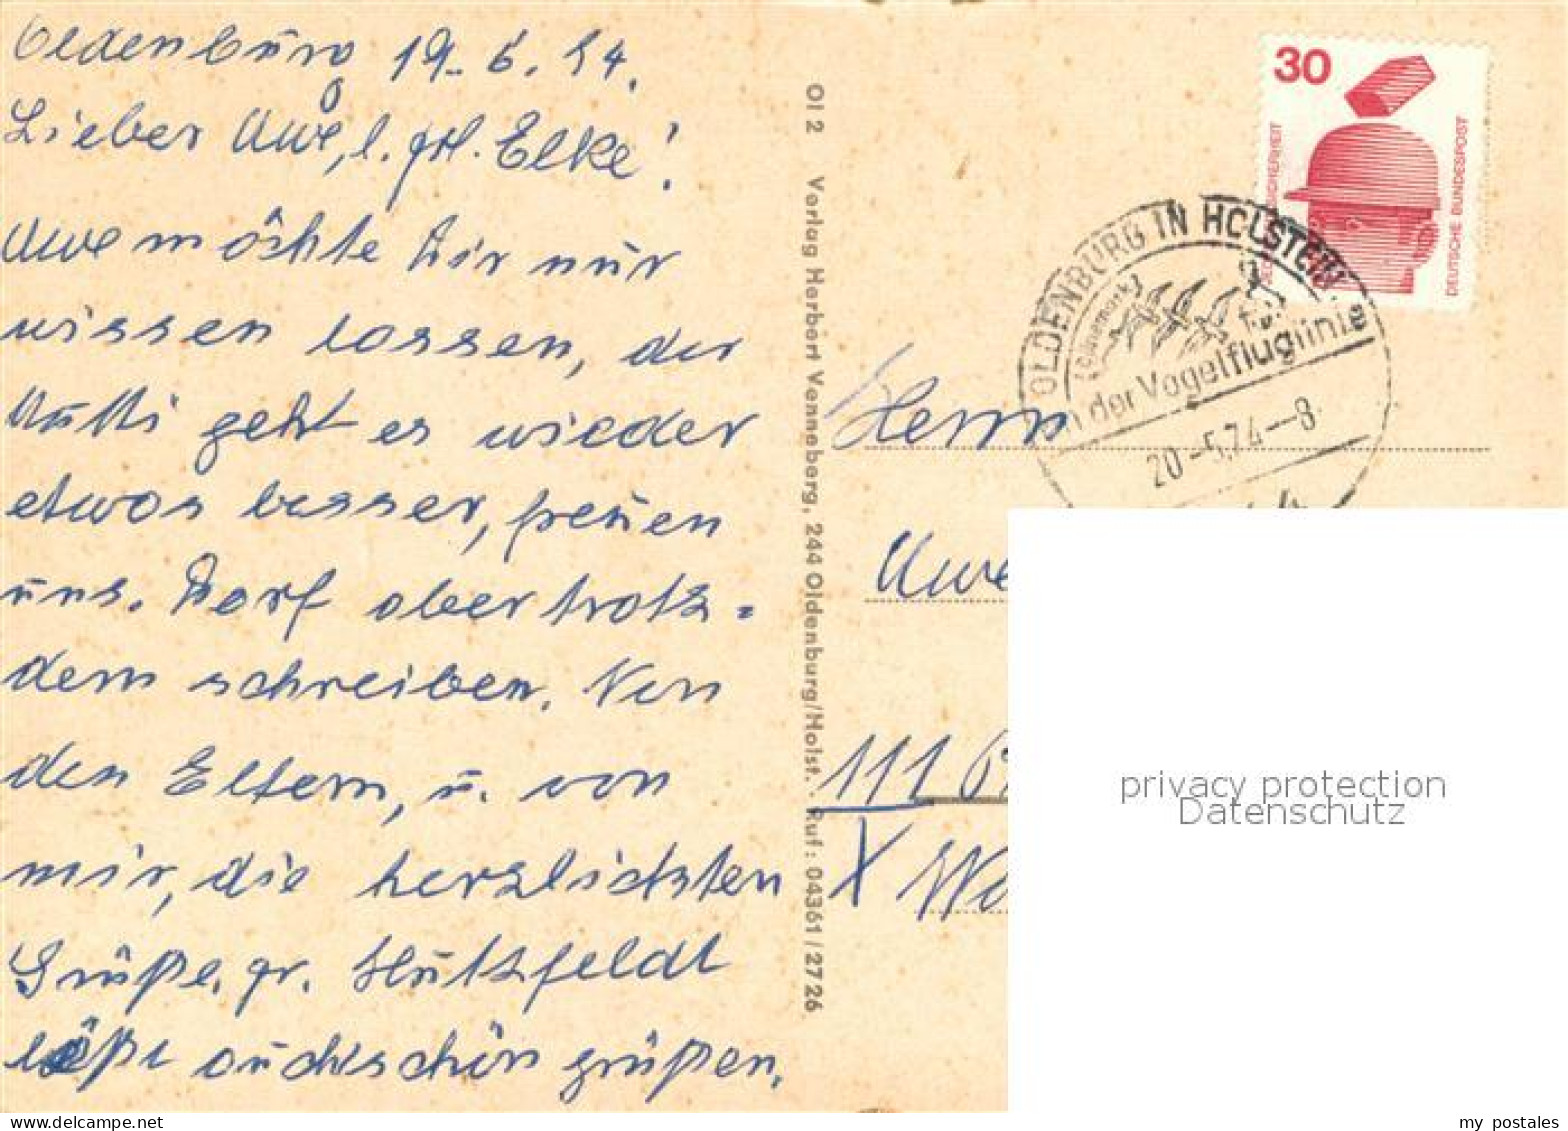 Oldenburg 19. 5. 74.
Lieber Uwe, l. Elke!
Uwe möchte Dir nur
wissen lassen, der
Mutti geht es wieder
etwas besser, freuen
uns. Darf aber trotz=
dem schreiben. Von
den Eltern, u. von
mir, die herzlichsten
Grüße. Fr. Hützfeldt
läßt auch schön grüßen.
Ol 2 Verlag Herbert Vonneberg, 244 Oldenburg/Holst. · Ruf: 04361/2726
30
DEUTSCHE BUNDESPOST
OLDENBURG IN HOLSTEIN a
(Dänemark)
an der Vogelfluglinie
20.-5.74-8
Herrn
Uwe
111
X
privacy protection
Datenschutz
my postales